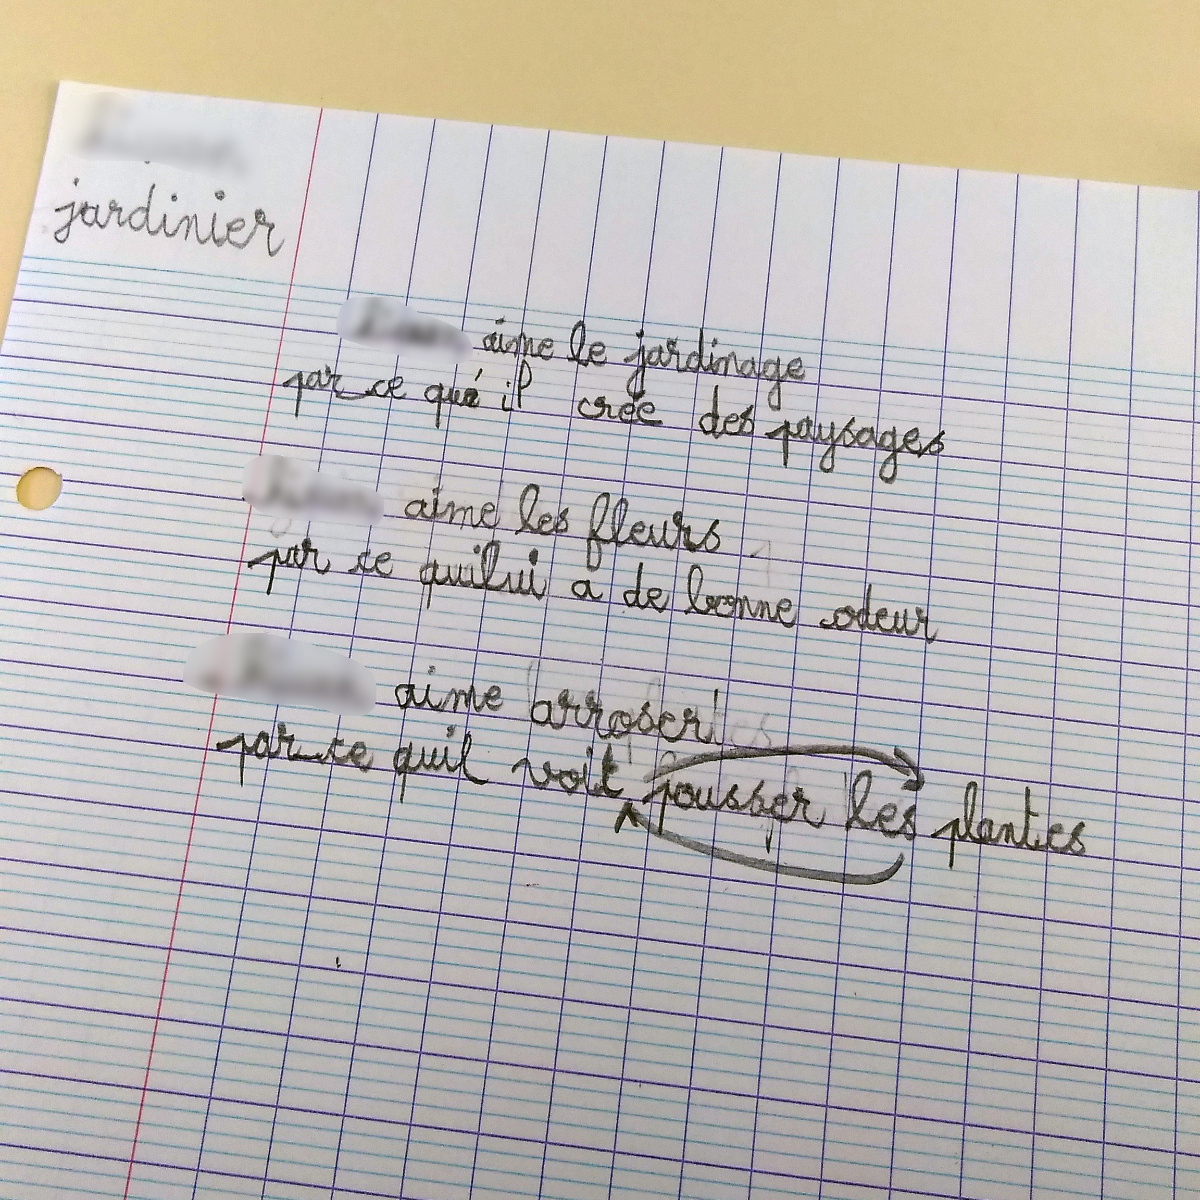 jardinier
aime le jardinage
par ce qué il crée des paysages
aime les fleurs
par ce quilui a de bonne odeur
aime arroser
par ce quil voit pousser les plantes